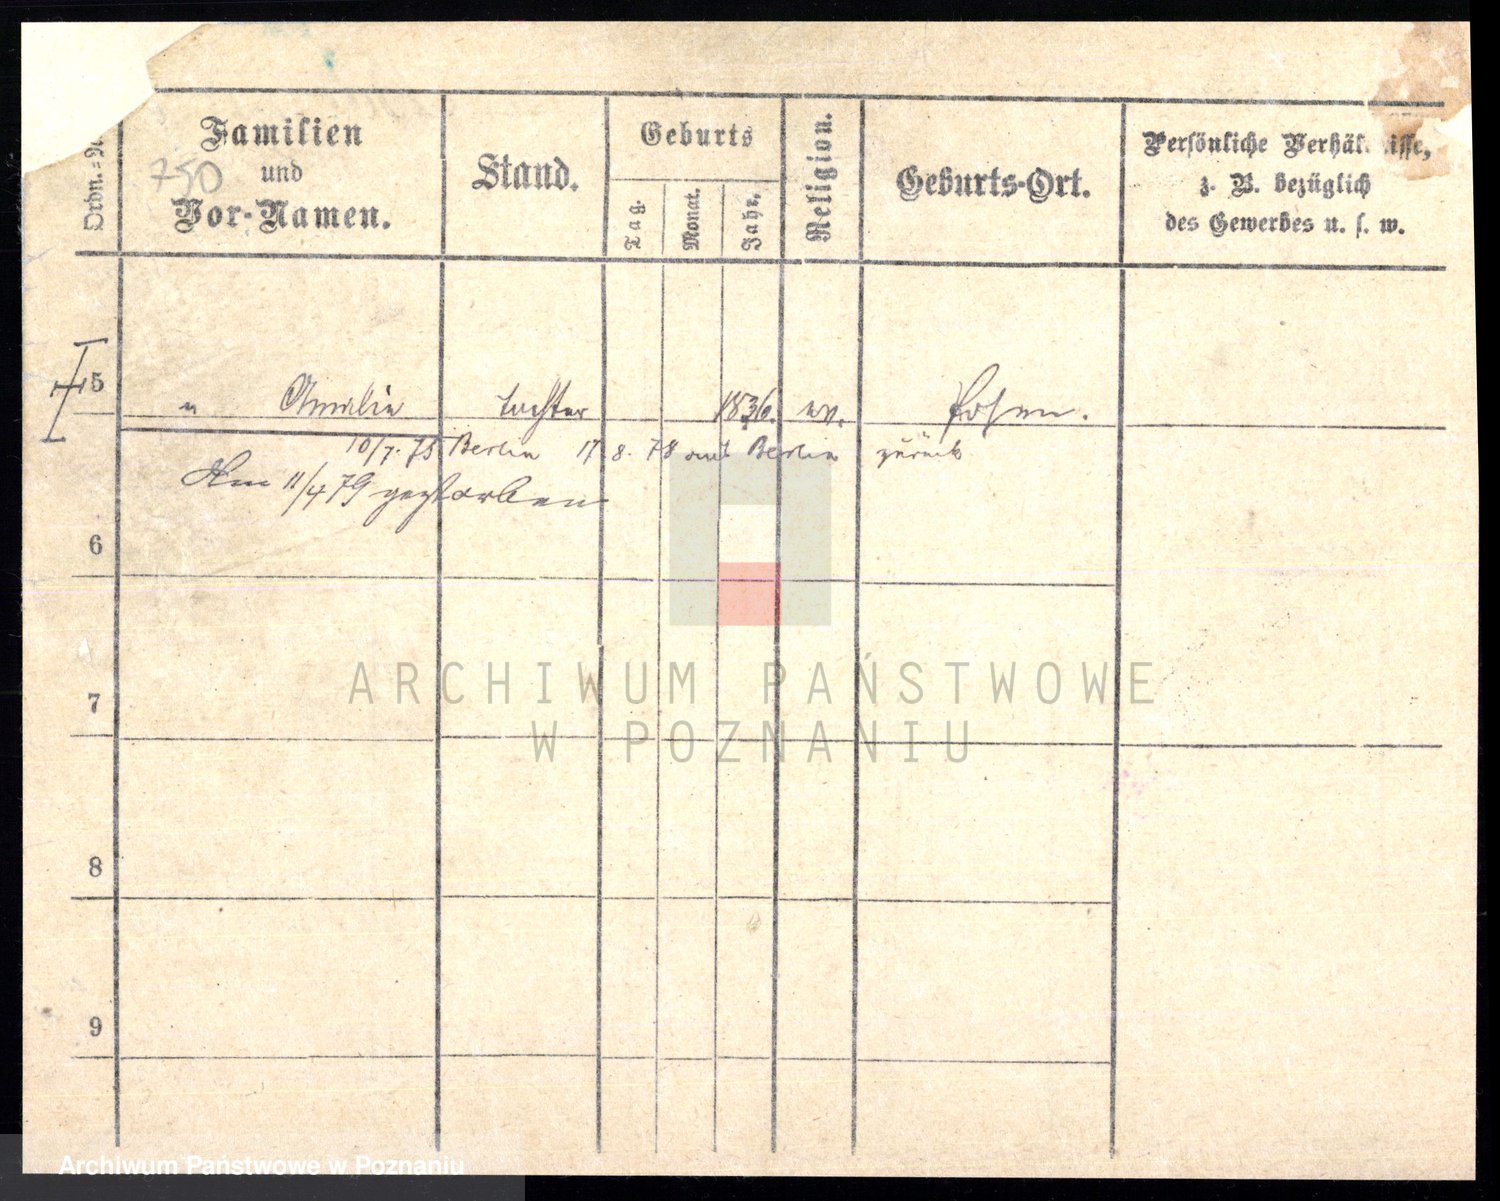 Ordn.=N
Familien
und
Vor-Namen.
750
Stand.
Geburts
Tag.
Monat.
Jahr.
Religion.
Geburts-Ort.
Persönliche Verhäl nisse,
z. B. bezüglich
des Gewerbes u. s. w.
5
" Amalie Tochter 1836. ev. Posen.
10/7. 78 Berlin 17 8. 78 aus Berlin zurück
Am 11/4 79 gestorben
6
7
8
9
ARCHIWUM PAŃSTWOWE
W POZNANIU
Archiwum Państwowe w Poznaniu